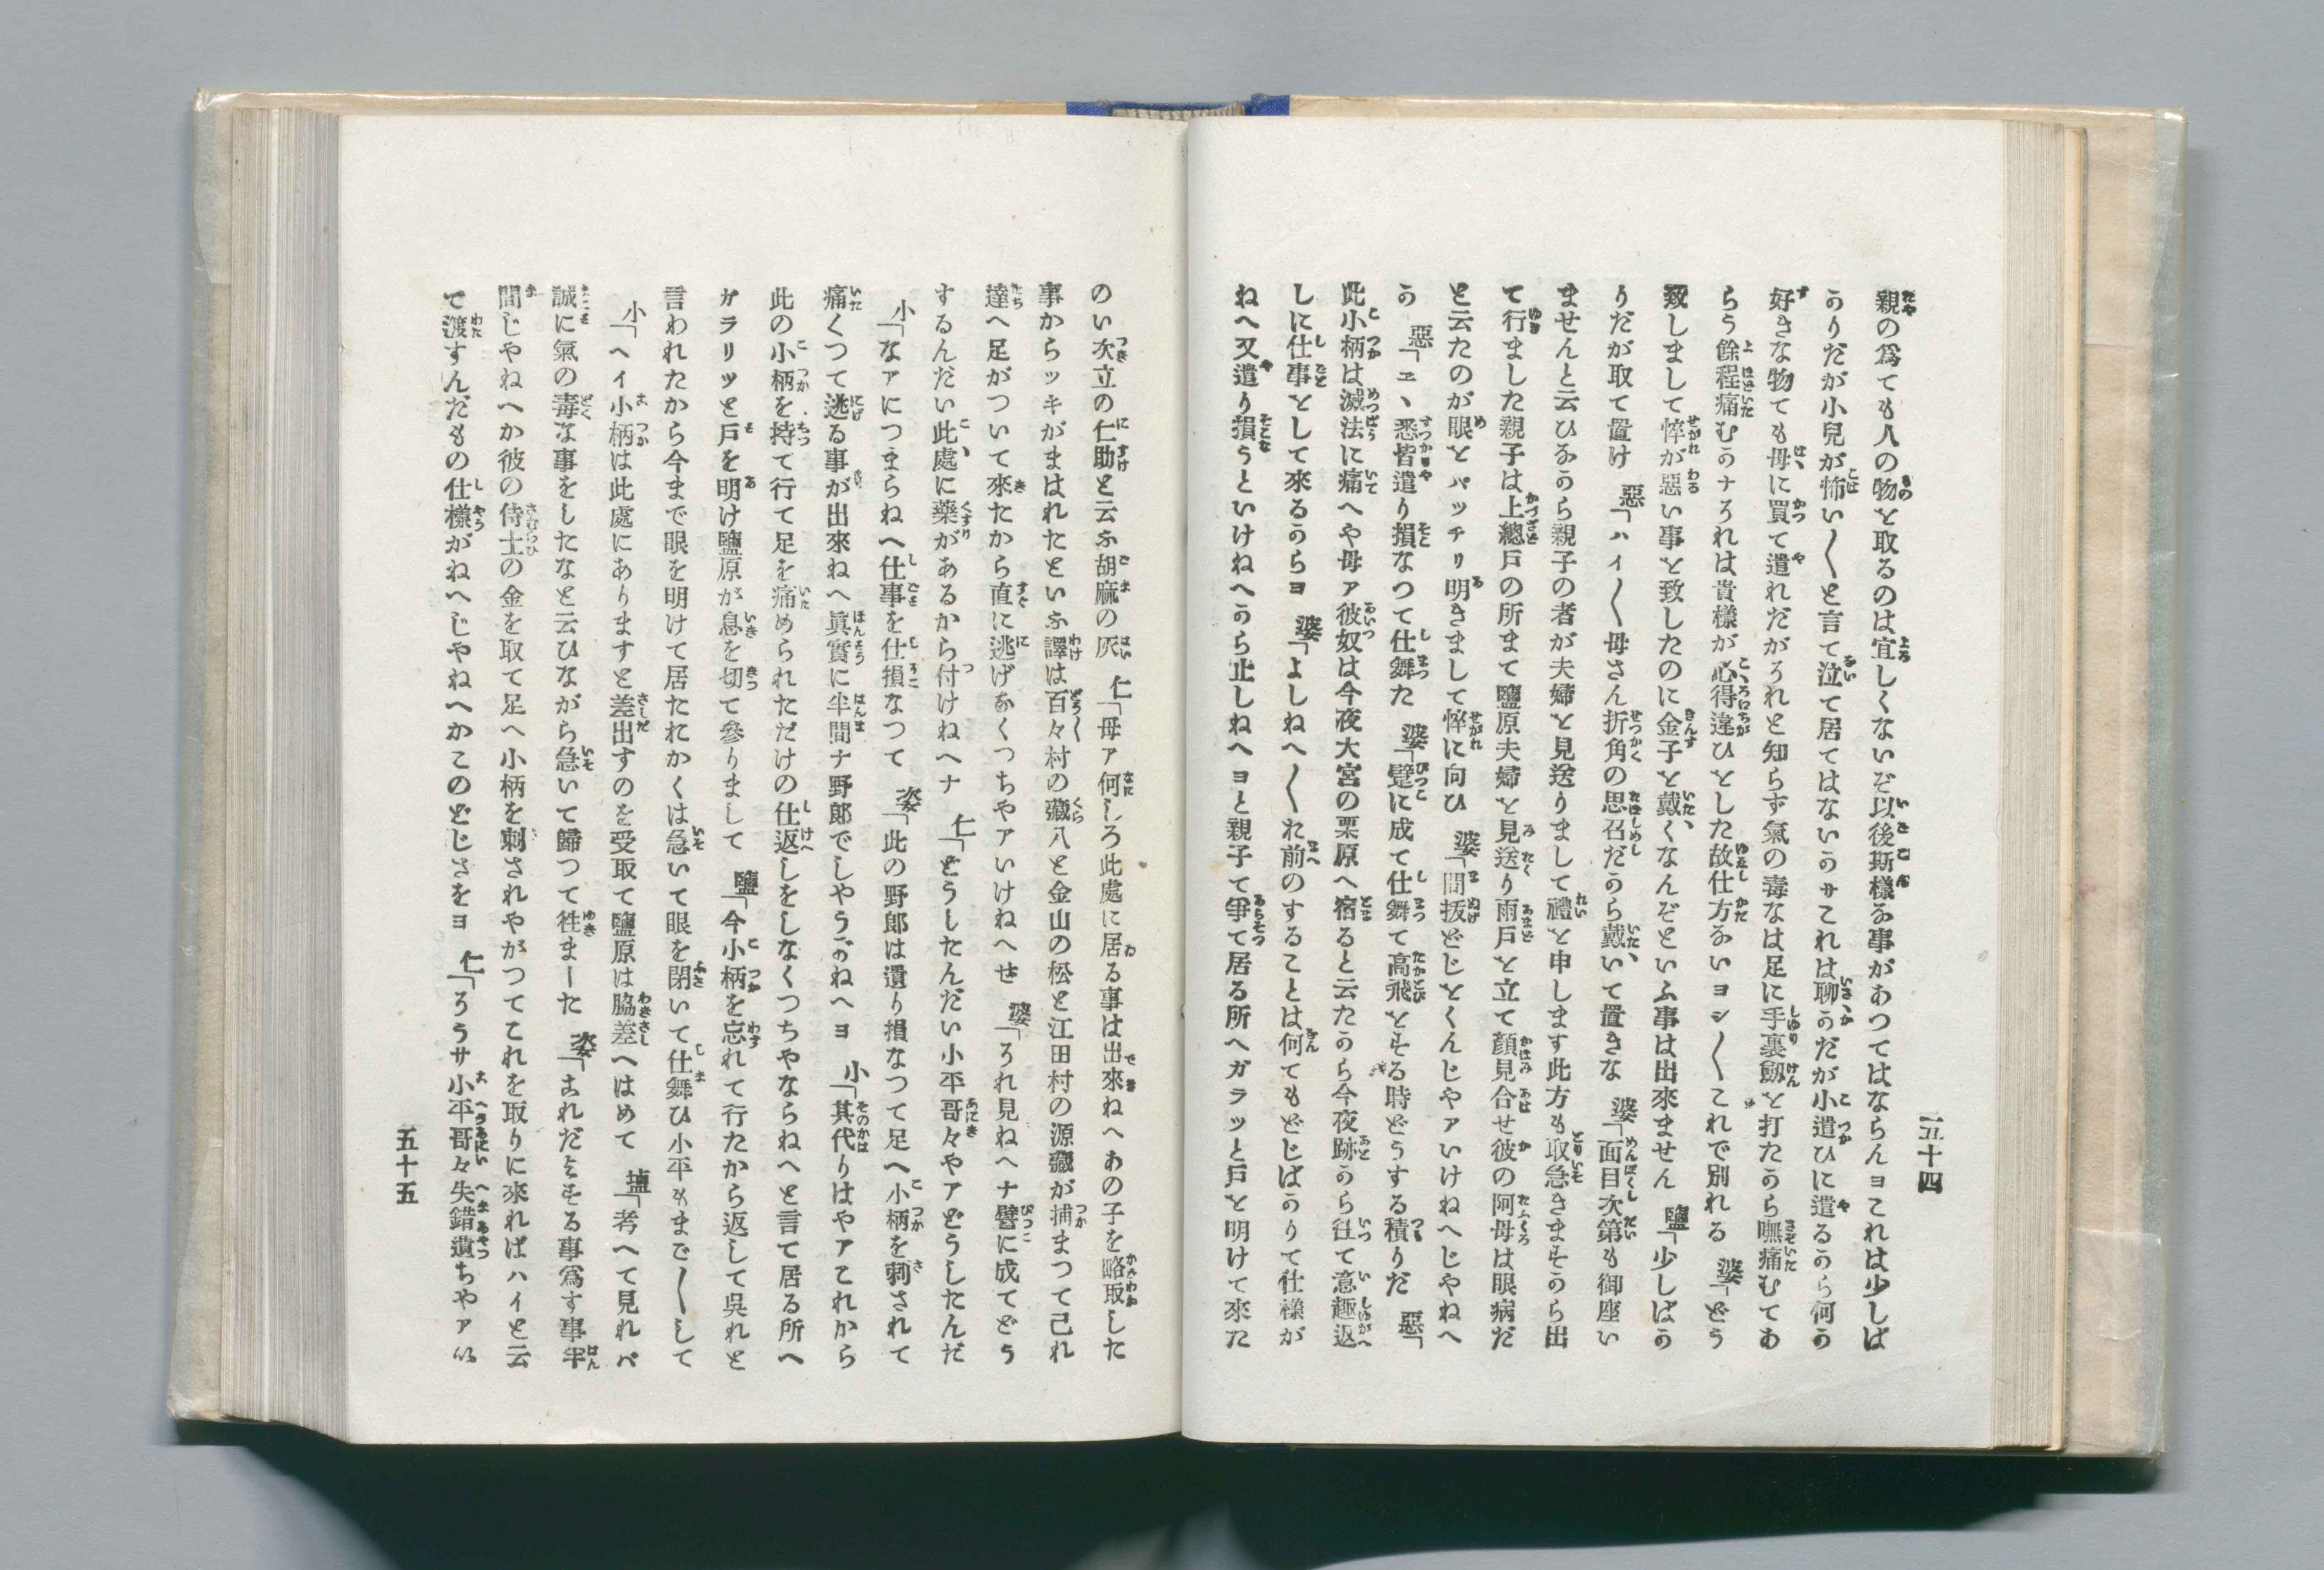 親の爲ても人の物を取るのは宜しくないぞ以後斯樣な事があつてはならんヨこれは少しば
かりだが小兒が怖い〳〵と言て泣て居てはないかサこれは聊かだが小遣ひに遣るから何か
好きな物ても母に買て遣れだがそれと知らず氣の毒なは足に手裏劔を打たから嘸痛むてあ
らう餘程痛むかナそれは貴樣が心得違ひをした故仕方ないヨシ〳〵これで別れる　婆「どう
致しまして悴が惡い事を致したのに金子を戴くなんぞといふ事は出來ません　鹽「少しばか
りだが取て置け　惡「ハイ〳〵母さん折角の思召だから戴いて置きな　婆「面目次第も御座い
ませんと云ひながら親子の者が夫婦を見送りまして禮を申します此方も取急きますから出
て行ました親子は上總戸の所まて鹽原夫婦を見送り雨戸を立て顔見合せ彼の阿母は眼病だ
と云たのが眼をパッチリ明きまして悴に向ひ　婆「間拔どじをくんじやアいけねへじやねへ
か　惡「エヽ悉皆遣り損なつて仕舞た　婆「躄に成て仕舞つて高飛をする時どうする積りだ　惡「
此小柄は滅法に痛へや母ア彼奴は今夜大宮の栗原へ宿ると云たから今夜跡から往て意趣返
しに仕事をして來るからヨ　婆「よしねへ〳〵れ前のすることは何てもどじばかりて仕樣が
ねへ又遣り損うといけねへから止しねへヨと親子て爭て居る所へガラッと戸を明けて來た
五十四
のい次立の仁助と云ふ胡麻の灰　仁「母ア何しろ此處に居る事は出來ねへあの子を略取した
事からッキがまはれたといふ譯は百々村の藏八と金山の松と江田村の源藏が捕まつて己れ
達へ足がついて來たから直に逃げなくつちやアいけねへせ　婆「それ見ねへナ躄に成てどう
するんだい此處に藥があるから付けねへナ　仁「どうしたんだい小平哥々やアどうしたんだ
小「なアにつまらねへ仕事を仕損なつて　婆「此の野郎は遣り損なつて足へ小柄を刺されて
痛くつて逃る事が出來ねへ眞實に半間ナ野郎でしやうがねへヨ　小「其代りはやアこれから
此の小柄を持て行て足を痛められただけの仕返しをしなくつちやならねへと言て居る所へ
ガラリッと戸を明け鹽原が息を切て參りまして　鹽「今小柄を忘れて行たから返して呉れと
言われたから今まで眼を明けて居たれかくは急いて眼を閉いて仕舞ひ小平もまで〳〵して
小「ヘイ小柄は此處にありますと差出すのを受取て鹽原は脇差へはめて　鹽「考へて見れバ
誠に氣の毒な事をしたなと云ひながら急いて歸つて徃ました　婆「あれだよする事爲す事半
間じやねへか彼の侍士の金を取て足へ小柄を刺されやがつてこれを取りに來ればハイと云
て渡すんだもの仕樣がねへじやねへかこのどじさをヨ　仁「そうサ小平哥々失錯遺ちやアい
五十五